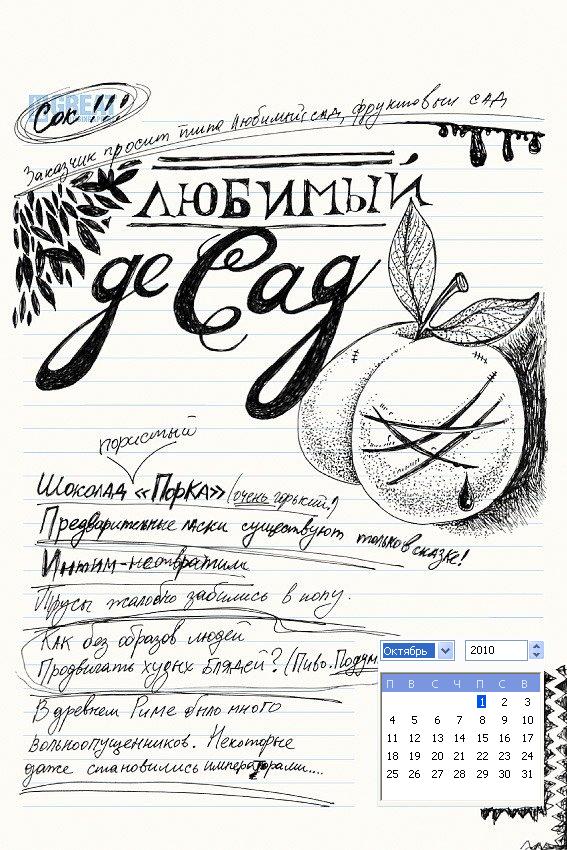 Сок!!!
Заказчик просит типа Любимый сад, фруктовый сад
ЛЮБИМЫЙ
де Сад
пористый
Шоколад «Порка» (очень горький!)
Предварительные ласки существуют только в сказке!
Интим-неотвратим
Трусы жалобно забились в попу.
Как без образов людей
Продвигать худых блядей? (Пиво.
В древнем Риме было много
вольноопущенников. Некоторые
даже становились императорами....
Октябрь 2010
П В С Ч П С В
1 2 3
4 5 6 7 8 9 10
11 12 13 14 15 16 17
18 19 20 21 22 23 24
25 26 27 28 29 30 31